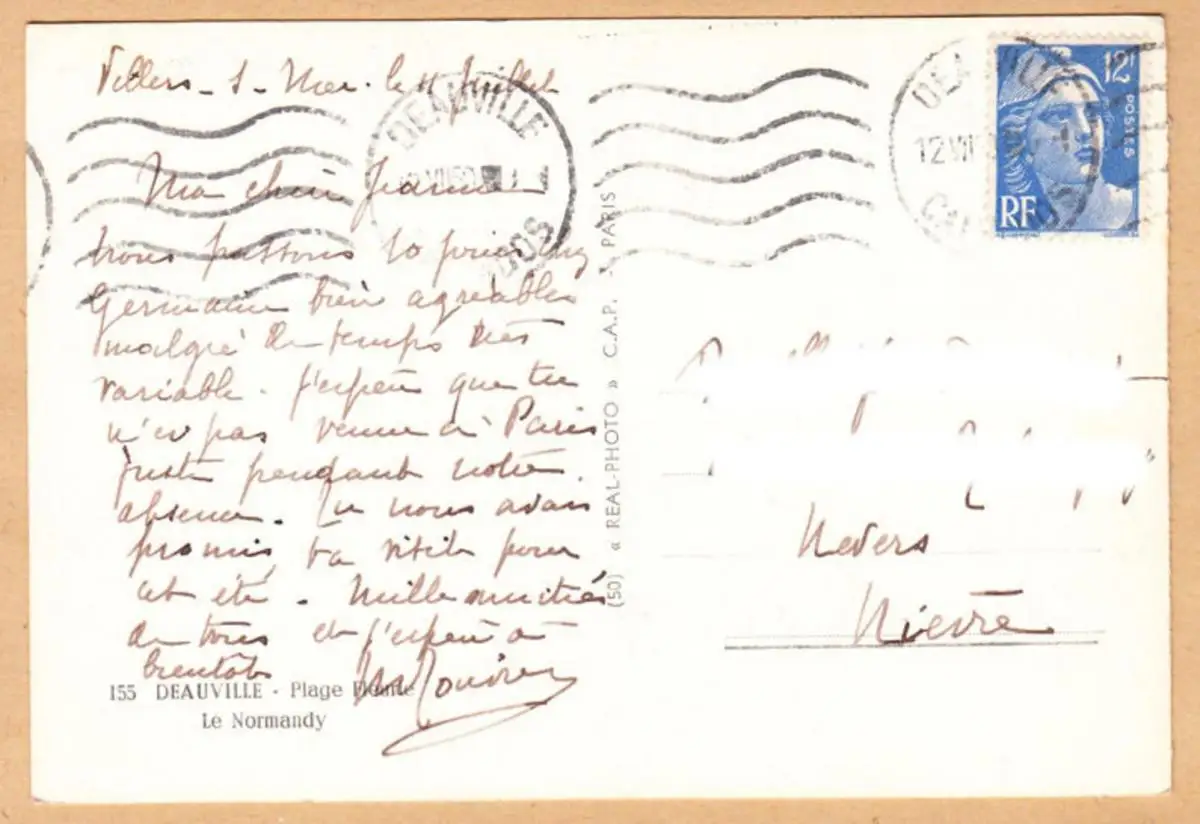 Villers-s-Mer. le 11 Juillet
Ma chère Jeanne
Nous passons 10 jours chez
Germaine bien agréables
malgré un temps très
variable. J'espère que tu
n'es pas venue à Paris
juste pendant notre
absence. Tu nous avais
promis ta visite pour
cet été. Mille amitiés
de tous et j'espère à
bientôt
155 DEAUVILLE - Plage Fleurie
Le Normandy
DEAUVILLE
DEAUVILLE
12 VII
CALVADOS
12F
POSTES
RF
(50) « REAL-PHOTO » C.A.P. - PARIS
Nevers
Nièvre